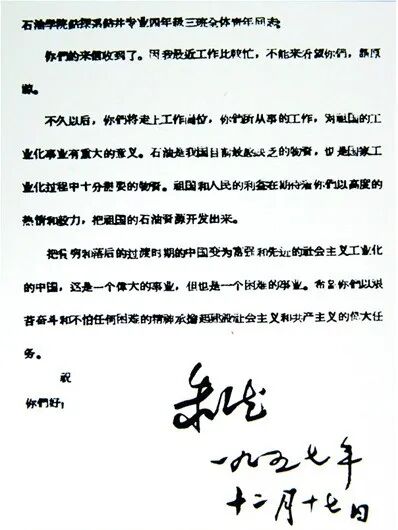 石油学院鉆探系鉆井专业四年级三班全体青年同志：
你們的来信收到了。因我最近工作比較忙，不能来看望你們，請原
諒。
不久以后，你們将走上工作崗位，你們所从事的工作，对祖国的工
业化事业有重大的意义。石油是我国目前最感缺乏的物資，也是国家工
业化过程中十分需要的物資。祖国和人民的利益在期待着你們以高度的
热情和毅力，把祖国的石油資源开发出来。
把貧穷和落后的过渡时期的中国变为富强和先进的社会主义工业化
的中国，这是一个偉大的事业，但也是一个困难的事业。希望你們以艰
苦奋斗和不怕任何困难的精神承擔起建設社会主义和共产主义的偉大任
务。
祝
你們好！
朱德
一九五七年
十二月十七日